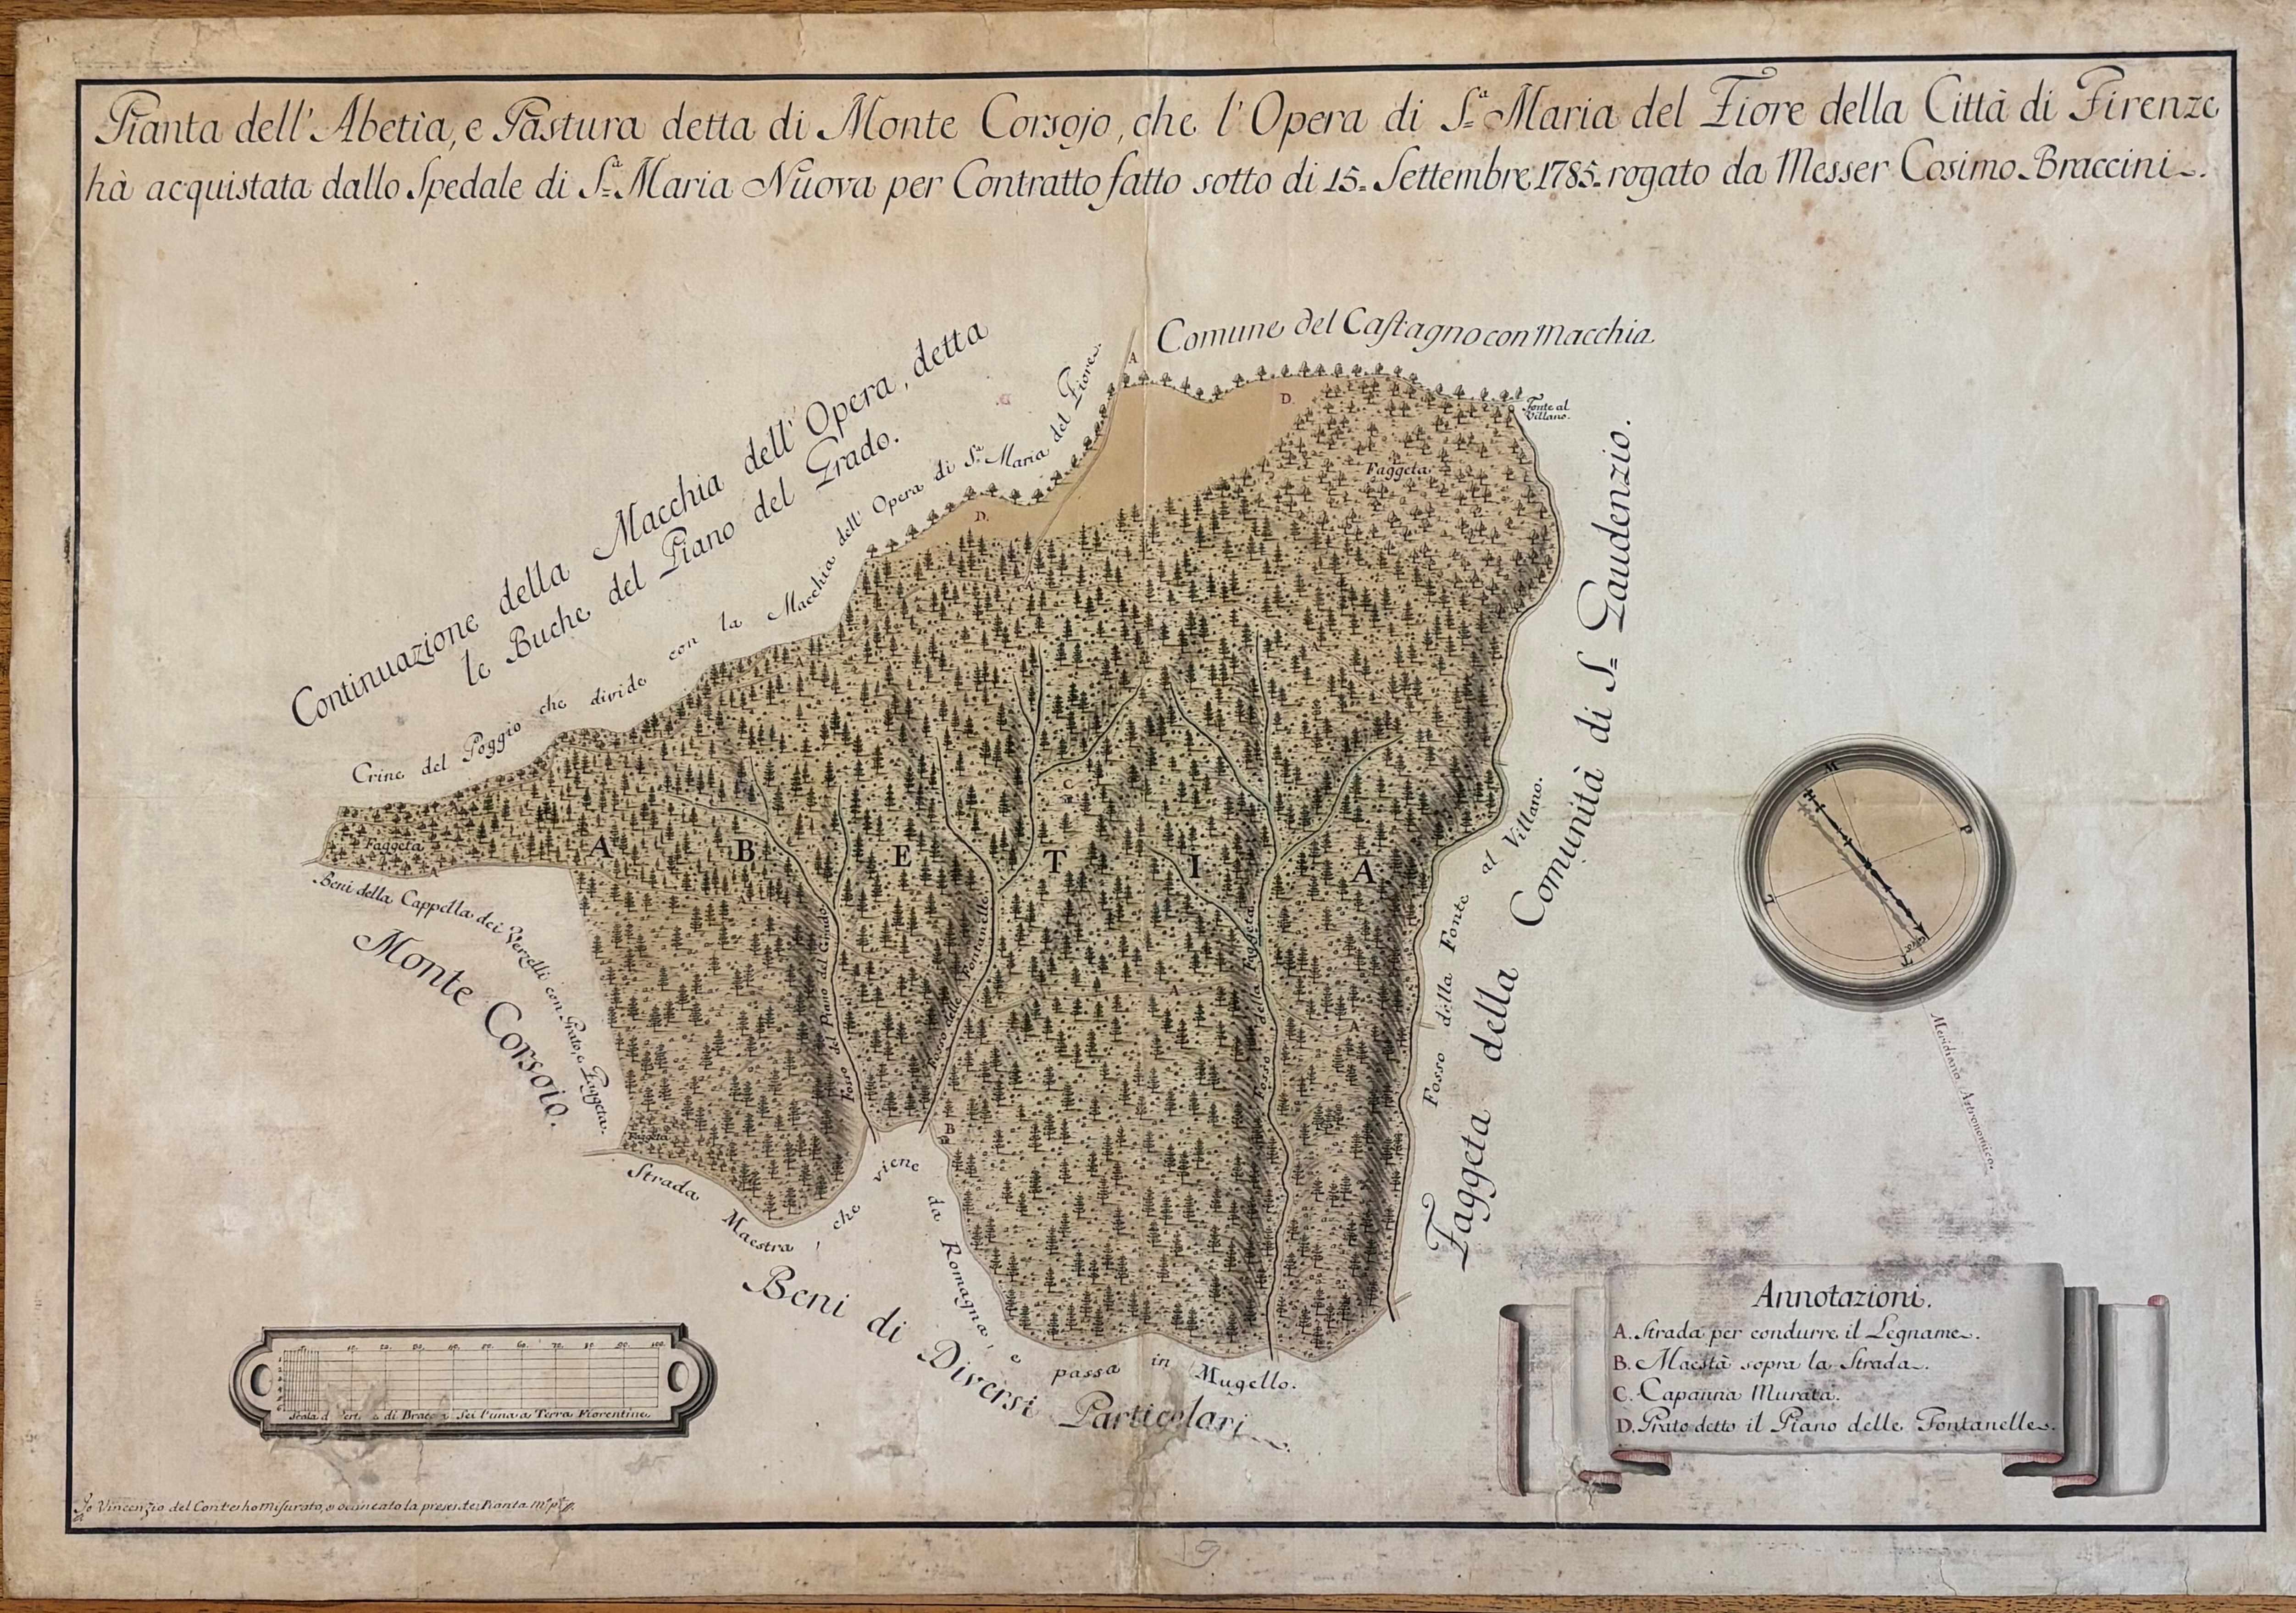 Pianta dell'Abetìa, e Pastura detta di Monte Corsojo, che l'Opera di S.ª Maria del Fiore della Città di Firenze
hà acquistata dallo Spedale di S.ª Maria Nuova per Contratto fatto sotto di 15. Settembre 1785. rogato da Messer Cosimo Braccini.
Comune del Castagno con Macchia
Continuazione della Macchia dell'Opera, detta
le Buche del Piano del Grado.
Crine del Poggio che divide con la Macchia dell'Opera di S.ª Maria del Fiore.
A
D.
D.
Fonte al
Villano.
Faggeta
Faggeta della Comunità di S. Gaudenzio.
Fosso della Fonte al Villano.
A
A
C
Faggeta
A
A B E T I A
A
A
A
Fosso del Piano del Grado
Fosso delle Fontanelle
Fosso della Faggeta
B
Faggeta
Beni della Cappella dei Verzelli con Prato, e Faggeta.
Monte Corsoio.
Strada Maestra, che viene da Romagna, e passa in Mugello.
Beni di Diversi Particolari
M
P
L
T
Meridiano Astronomico.
Annotazioni.
A. Strada per condurre il Legname.
B. Maestà sopra la Strada.
C. Capanna Murata.
D. Prato detto il Piano delle Fontanelle.
10. 20. 30. 40. 50. 60. 70. 80. 90. 100.
Scala di di Braccia Sei l'una a Terra Fiorentine
Io Vincenzio del Conte ho misurato, e la presente Pianta
19